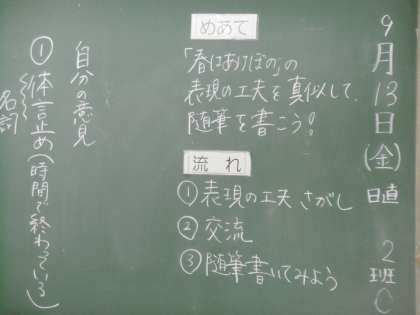 9月13日(金)
日直
2班C
めあて
「春はあけぼの」の
表現の工夫を真似して、
随筆を書こう!
流れ
①表現の工夫さがし
②交流
③随筆書いてみよう
自分の意見
①体言止め(時間で終わっている)
名詞